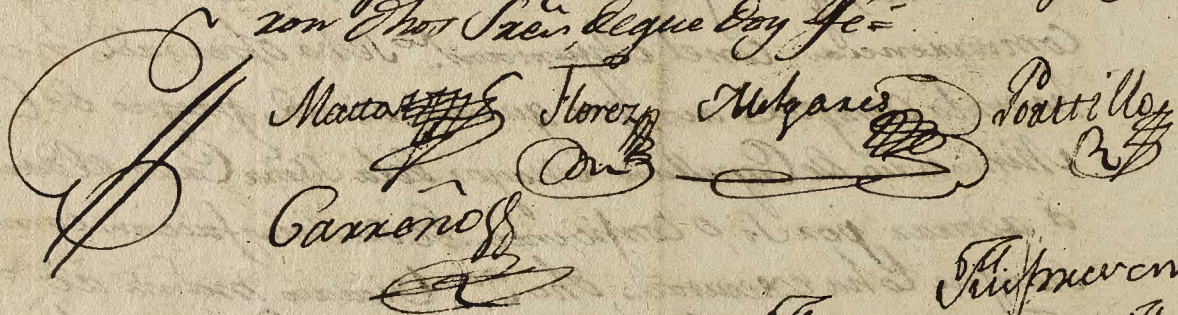 ron dhos Sres, de que doy fe=
Matta Florez Melgares Portillo
Carreño